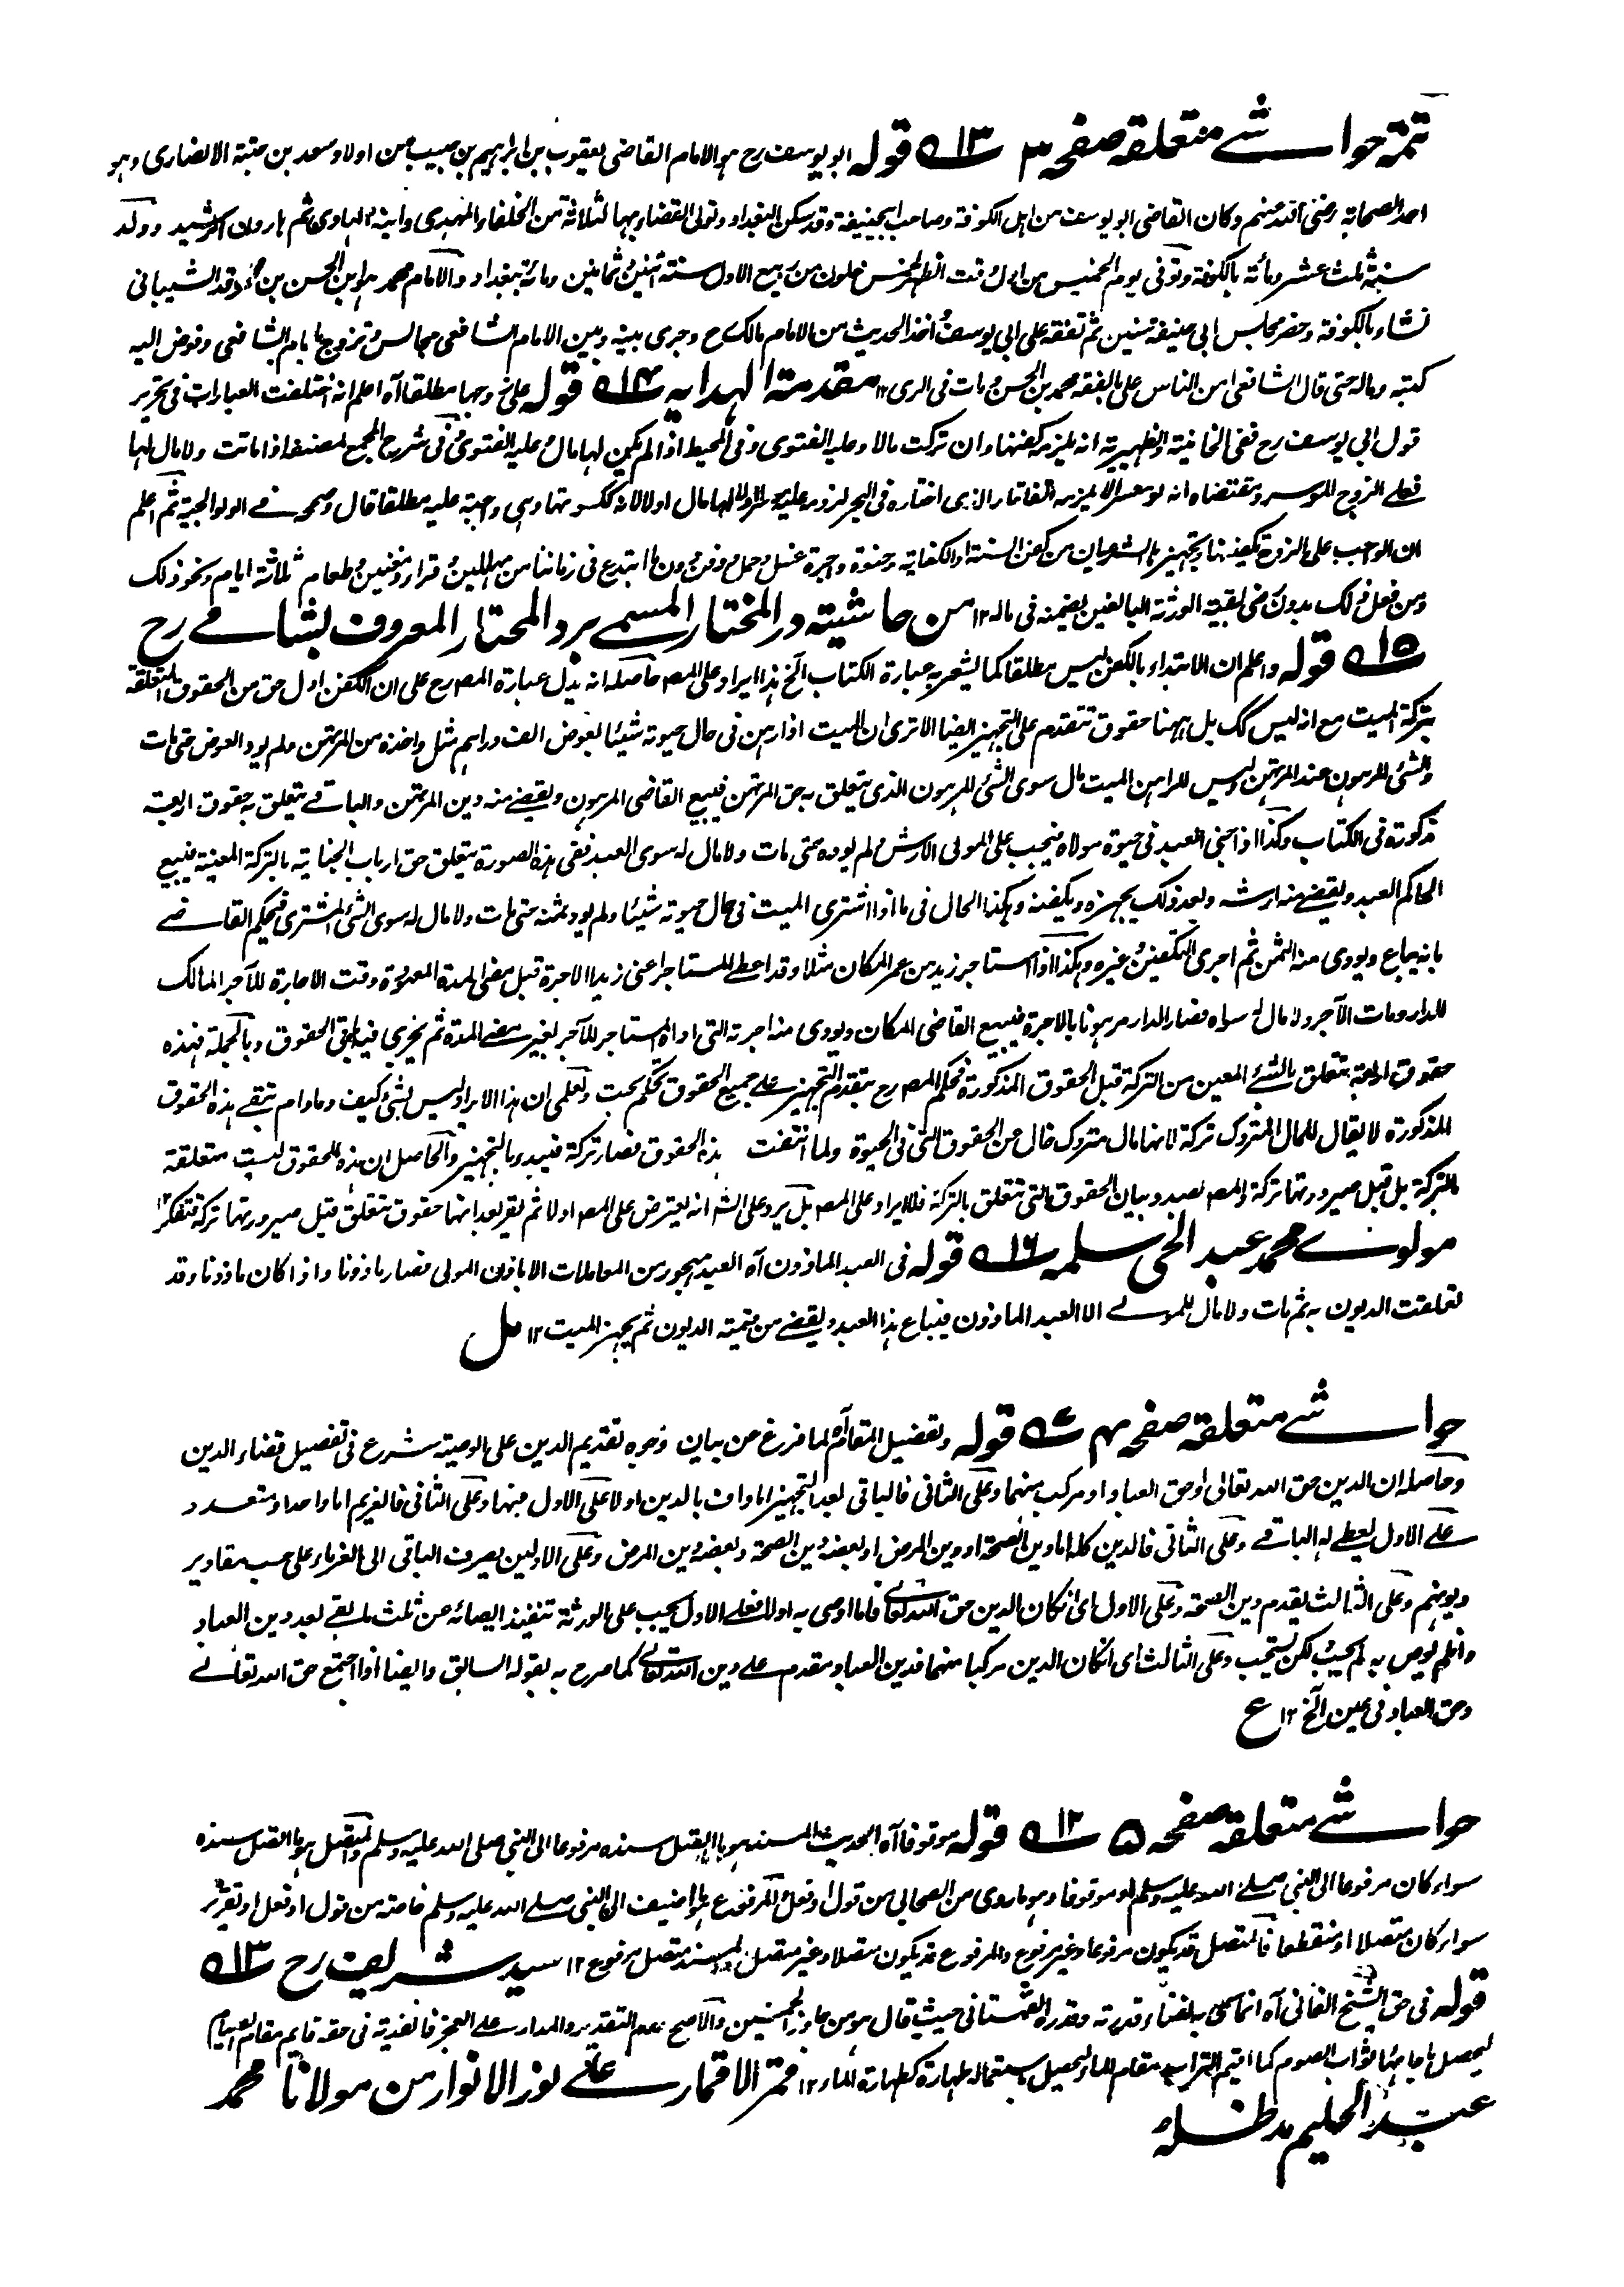 تتمة حواشے متعلقہ صفحہ ٣ ١٣ قوله ابو يوسف رح ہو الامام القاضى يعقوب بن ابراہيم بن حبيب من اولاد سعد بن حتبة الانصارى وہو
احد الصحابة رضى الله عنہم وكان القاضى ابو يوسف من اہل الكوفة وصاحب ابيحنيفة وقد سكن البغداد وتولى القضاء بہا لثلاثة من الخلفاء المہدى وابنہ الہادى ثم ہارون الرشيد وولد
سنة ثلث عشر ومأتہ بالكوفة وتوفى يوم الخميس من اول وقت الظہر لخمس خلون من ربيع الاول سنتہ اثنين وثمانين ومائة ببغداد والامام محمد ہو ابن الحسن بن فرقد الشيبانى
نشاء بالكوفة وحضر مجلس ابى حنيفة سنين ثم تفقہ على ابى يوسف واخذ الحديث من الامام مالك رح وجرى بينہ وبين الامام الشافعى مجالس وتزوج بام الشافعى وفوض اليہ
كتبہ ومالہ حتى قال الشافعى امن الناس على بالفقہ محمد بن الحسن ومات فى الرى ١٢ مقدمة الہدايہ ١٤ قوله على زوجہا مطلقا آہ اعلم انہ اختلفت العبارات فى تحرير
قول ابى يوسف رح ففى الخانية والظہيرية انہ يلزمہ كفنہا وان تركت مالا وعليہ الفتوى وفى المحيط اذا لم يكن لہا مال وعليہ الفتوى وفى شرح المجمع لمصنفہ اذا ماتت ولا مال لہا
فعلے الزوج الموسر ومقتضاہ انہ لو معسر الا يلزمہ اتفاقا والذى اختارہ فى البحر لزومہ عليہ لہا مال اولا لانہ ككسوتہا وہى واجبة عليہ مطلقا قال وصححہ فے الولوالجية ثم اعلم
ان الواجب على الزوج تكفينہا وتجہيزہا الشرعيان من كفن السنة او الكفاية وحنوط واجرة غسل وحمل ودفن دون ما ابتدع فى زماننا من مہللين وقراء ومغنين وطعام ثلاثة ايام ونحو ذلك
ومن فعل ذلك بدون رضى بقية الورثة البالغين يضمنہ فى مالہ ١٢ من حاشيتہ در المختار المسمے برد المحتار المعروف بشامے رح
١٥ قوله واعلم ان الابتداء بالكفن ليس مطلقا كما يشعر بہ عبارة الكتاب الخ ہذا ايراد على المصہ حاصلہ انہ يدل عبارة المصہ رح على ان الكفن اول حق من الحقوق المتعلقة
بتركة الميت مع انہ ليس كك بل ہہنا حقوق تتقدم على التجہيز ايضا الا ترى ان الميت اذا رہن فى حال حيوتہ شيئا بعوض الف دراہم مثل واخذہ من المرتہن ولم يود العوض حتى مات
والشئ المرہون عند المرتہن وليس للراہن الميت مال سوى الشئ المرہون الذى يتعلق بہ حق المرتہن فيبيع القاضى المرہون ويقضے منہ دين المرتہن والباقے يتعلق بہ حقوق اربعة
مذكورة فى الكتاب وكذا اذا جنى العبد فى حيوة مولاہ فيجب على المولى الارش ولم يودہ حتى مات ولا مال لہ سوى العبد ففى ہذہ الصورة يتعلق حق ارباب الجناية بالتركة المعينة فيبيع
الحاكم العبد ويقضے منہ ارشہ وبعد ذلك يجہزہ ويكفنہ وہكذا الحال فى ما اذا اشترى الميت فى حال حيوتہ شيئا ولم يود ثمنہ حتى مات ولا مال لہ سوى الشئ المشترى فيحكم القاضے
بانہ يباع ويودى منہ الثمن ثم اجرى التكفين وغيرہ وہكذا اذا استاجر زيد من عمر المكان مثلا وقد اعطے المستاجر اعنى زيدا الاجرة قبل مضى المدة المعہودة وقت الاجارة للآجر المالك
للدار ومات الآجر ولا مال لہ سواہ فصار الدار مرہونا بالاجرة فيبيع القاضى المكان ويودى منہ اجرتہ التى اداہ المستاجر للآجر بغير مضے المدة ثم يجرى فيہ باقى الحقوق وبالجملة فہذہ
حقوق اربعة يتعلق بالشئ المعين من التركة قبل الحقوق المذكورة فحكم المصہ رح بتقدم التجہيز علے جميع الحقوق تحكم بحت ولعلمى ان ہذا الايراد ليس بشئ كيف وما دام تبقے ہذہ الحقوق
المذكورة لا يقال للمال المتروك تركة لانہا مال متروك خال عن الحقوق التى فى الحيوة ولما انتفت ہذہ الحقوق فصار تركة فيبدء بالتجہيز والحاصل ان ہذہ الحقوق ليست متعلقة
بالتركة بل قبل صيرورتہا تركة والمصہ بصدد بيان الحقوق التى تتعلق بالتركة فلا ايراد على المصہ بل يرد على الشہ انہ يعترض على المصہ اولا ثم يقر بعد انہا حقوق تتعلق قبل صيرورتہا تركة فتفكر ١٢
مولوے محمد عبد الحى سلمہ ١٦ قوله فى العبد الماذون آہ العبد محجور من المعاملات الا باذن المولى فصار ماذونا واذا كان ماذونا وقد
تعلقت الديون بہ ثم مات ولا مال للمولے الا العبد الماذون فيباع ہذا العبد ويقضے من قيمتہ الديون ثم يجہز الميت ١٢ مل
حواشے متعلقہ صفحہ ٤ ٤ قوله وتفصيل المقام آہ لما فرغ عن بيان وجوہ تقديم الدين على الوصية شرع فى تفصيل قضاء الدين
وحاصلہ ان الدين حق اللہ تعالى او حق العباد او مركب منہما وعلى الثانى فالباقى بعد التجہيز اما واف بالدين اولا على الاول فبہا وعلى الثانى فالغريم اما واحد او متعدد
علے الاول يعطے لہ الباقے وعلى الثانى فالدين كلہ اما دين الصحة او دين المرض او بعضہ دين الصحة وبعضہ دين المرض وعلى الاولين يصرف الباقى الى الغرماء على حسب مقادير
ديونہم وعلى الثالث يقدم دين الصحة وعلى الاول اى ان كان الدين حق اللہ تعالے فاما اوصى بہ اولا فعلے الاول يجب على الورثة تنفيذ ايصائہ عن ثلث ما بقے بعد دين العباد
وان لم يوص بہ لم يجب لكن يستحب وعلى الثالث اى ان كان الدين مركبا منہما فدين العباد مقدم علے دين اللہ تعالے كما صرح بہ بقولہ السابق وايضا اذا اجتمع حق اللہ تعالے
وحق العباد فى عين الخ ١٢ ع
حواشے متعلقہ صفحہ ٥ ١٢ قوله موقوفا آہ الحديث المسند ہو ما اتصل سندہ مرفوعا الى النبى صلى اللہ عليہ وسلم والمتصل ہو ما اتصل سندہ
سواء كان مرفوعا الى النبى صلے اللہ عليہ وسلم او موقوفا وہو ما روى من الصحابى من قول او فعل والمرفوع ما اضيف الى النبى صلے اللہ عليہ وسلم خاصة من قول او فعل او تقرير
سواء كان متصلا او منقطعا فالمتصل قد يكون مرفوعا وغير مرفوع والمرفوع قد يكون متصلا وغير متصل والمسند متصل مرفوع ١٢ سيد شريف رح ١٣
قوله فى حق الشيخ الفانى آہ انما سمى بہ لفناء قدرتہ وقدرہ القہستانى حيث قال ہو من جاوز الخمسين والاصح عدم التقدير والمدار علے العجز فالفدية فى حقہ قايم مقام الصيام
ليحصل بادائہا ثواب الصوم كما اقيم التراب مقام الماء ليحصل باستعمالہ طہارة كطہارة الماء ١٢ قمر الاقمار علے نور الانوار من مولانا محمد
عبد الحليم مد ظلہ